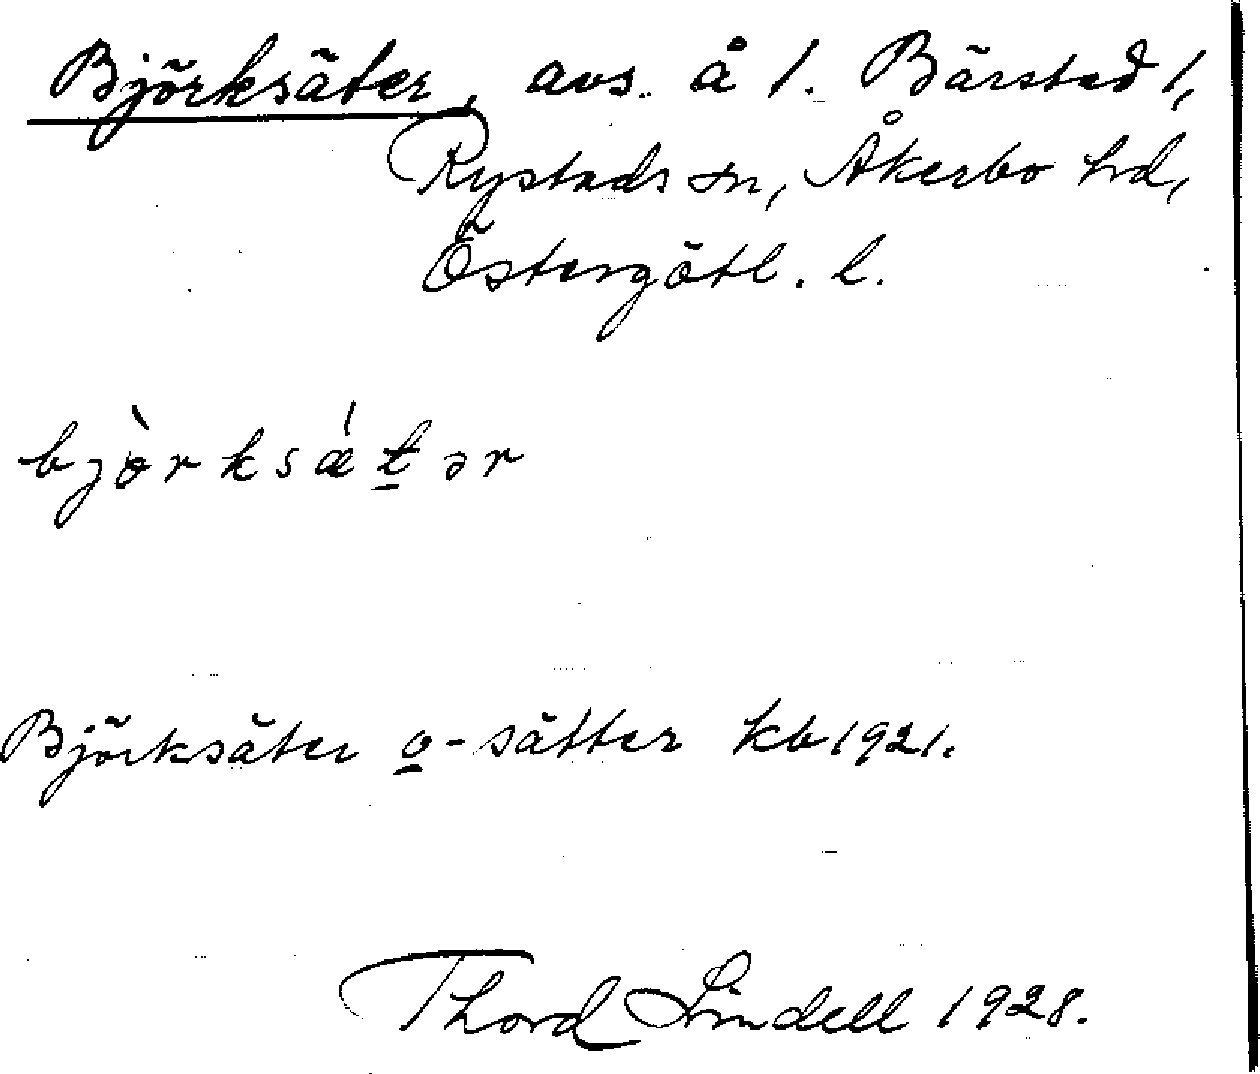 Björksäter, avs. å 1. Bärstad 1,
Rystads sn, Åkerbo hd,
Östergötl. l.
bjò̤rksǽt̲ər
Björksäter o̲ -sätter kb 1921.
Thord Lindell 1928.